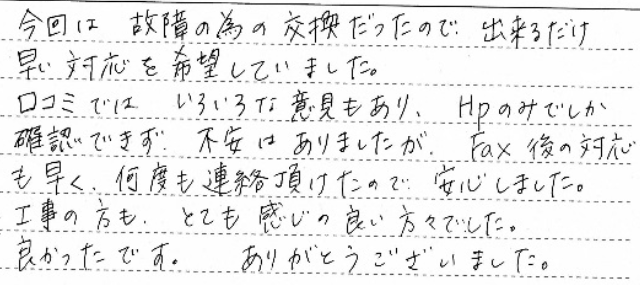 今回は 故障の為の交換だったので 出来るだけ
早い対応を希望していました。
口コミでは いろいろな意見もあり、 Hpのみでしか
確認できず 不安はありましたが、 Fax後の対応
も早く、何度も連絡頂けたので 安心しました。
工事の方も、 とても感じの良い方々でした。
良かったです。 ありがとうございました。